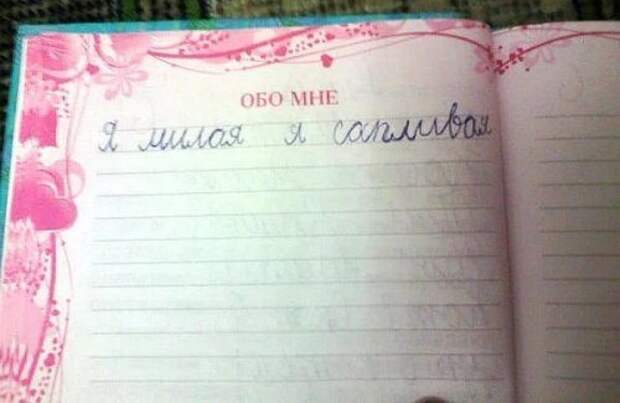 ОБО МНЕ
Я милая я сапливая